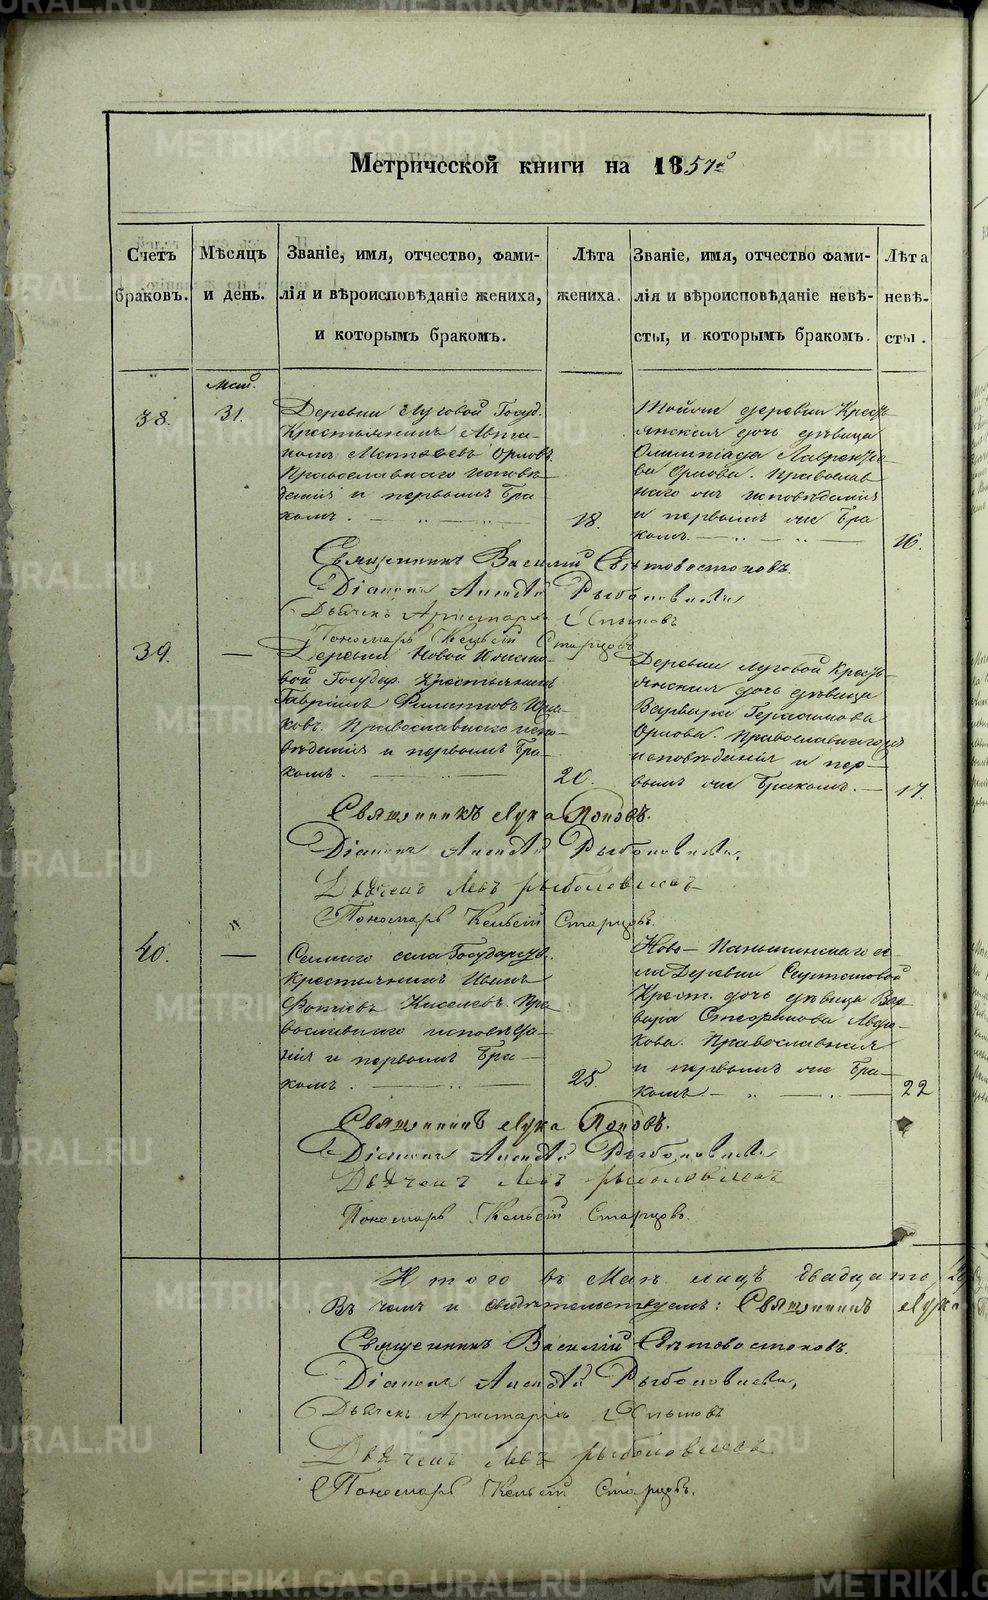 Метрической книги на 1857й
Счетъ браковъ.
Мѣсяцъ и день.
Званіе, имя, отчество, фами-
лія и вѣроисповѣданіе жениха,
и которымъ бракомъ.
Лѣта жениха.
Званіе, имя, отчество фами-
лія и вѣроисповѣданіе невѣ-
сты, и которымъ бракомъ.
Лѣта невѣ-
сты.
38.
31.
Деревни Луговой Госуд.
Крестьянинъ
Орловъ
Православнаго исповѣ
данія и первымъ бра
комъ.
18.
Тойже деревни Кресть
янская дочь дѣвица
Олимпіада Лаврентье
ва Орлова. Православ
наго же исповѣданія
и первымъ же бра
комъ.
16.
Священникъ Василій Свѣтовостоковъ.
Діаконъ Рыболовлевъ
Дьячекъ Аристархъ
Пономарь Старцовъ
39.
Деревни Новой
вой Государ. Крестьянинъ
Гавріилъ Филиповъ
ковъ. Православнаго испо-
вѣданія и первымъ бра-
комъ.
20.
Деревни Луговой Кресть
янская дочь дѣвица
Варвара Герасимова
Орлова. Православнаго
исповѣданія и пер-
вымъ же бракомъ.
17.
Священникъ Лука Поповъ.
Діаконъ Рыболовлевъ.
Дьячекъ Левъ Рыболовлевъ
Пономарь Старцовъ.
40.
Самаго села Государств.
Крестьянинъ Иванъ
Фотіевъ Киселевъ. Пра
вославнаго исповѣда-
нія и первымъ бра-
комъ.
25.
Ново-Паньшинскаго се
ла Деревни
Крест. дочь дѣвица Вар
вара Стефанова
кова. Православная
и первымъ же бра-
комъ.
22
Священникъ Лука Поповъ.
Діаконъ Рыболовлевъ
Дьячекъ Левъ Рыболовлевъ
Пономарь Старцовъ.
Итого въ Маѣ мцѣ двадцать
Въ чемъ и свидѣтельствуемъ: Священникъ Лука
Священникъ Василій Свѣтовостоковъ.
Діаконъ Рыболовлевъ,
Дьячекъ Аристархъ
Дьячекъ Левъ Рыболовлевъ
Пономарь Старцовъ.
METRIKI.GASO-URAL.RU